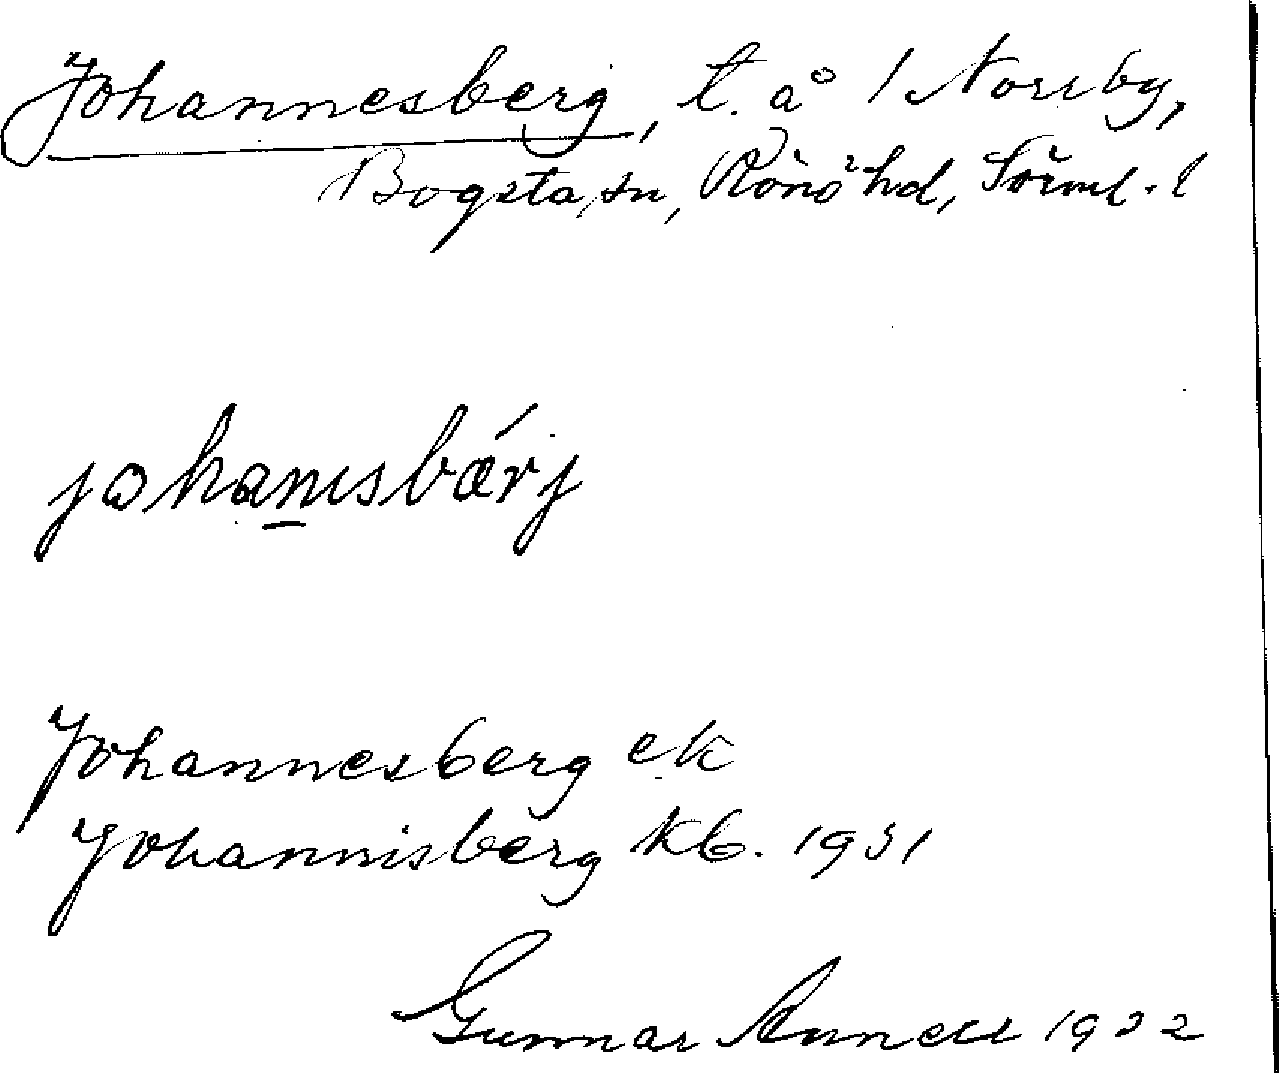 Johannesberg, t. å 1 Norrby,
Bogsta sn, Rönö hd, Sörml. l
johanısbǽrj
Johannesberg ek
Johannisberg kb. 1931
Gunnar Annell 1932